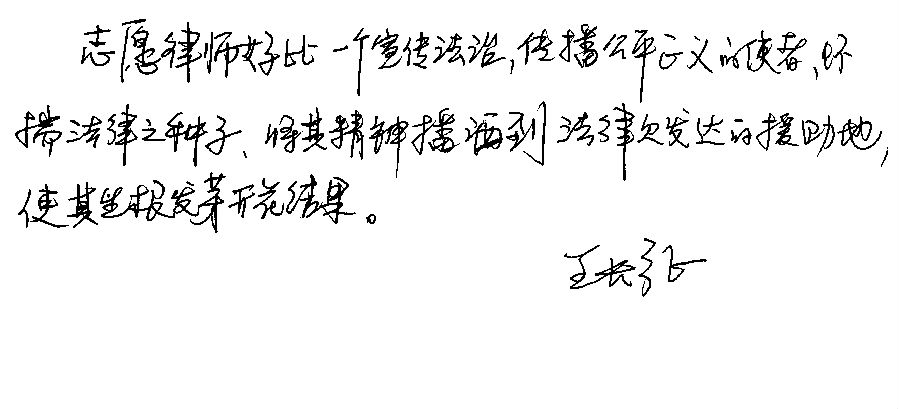 志愿律师好比一个宣传法治,传播公平正义的使者,怀
揣法律之种子、将其精神播洒到法律欠发达的援助地,
使其生根发芽开花结果。
王长江